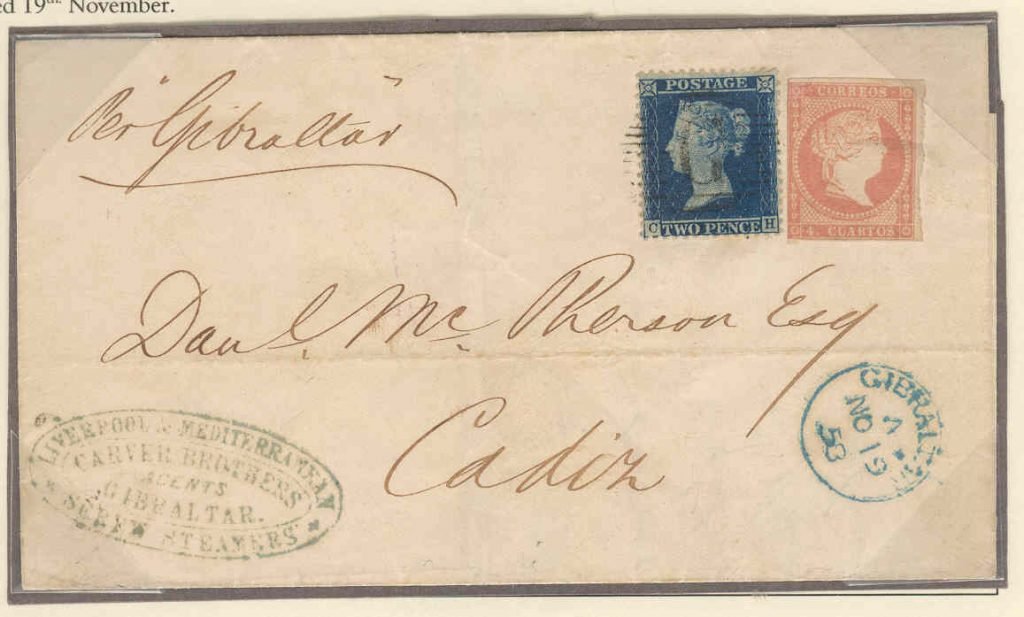 ed 19th November.
"Per Gibraltar"
POSTAGE
C TWO PENCE H
CORREOS
4 CUARTOS
Danl. Mc. Pherson Esq
Cadiz
GIBRALTAR
A
NO 19
58
LIVERPOOL & MEDITERRANEAN
CARVER BROTHERS
AGENTS
GIBRALTAR.
SCREW STEAMERS